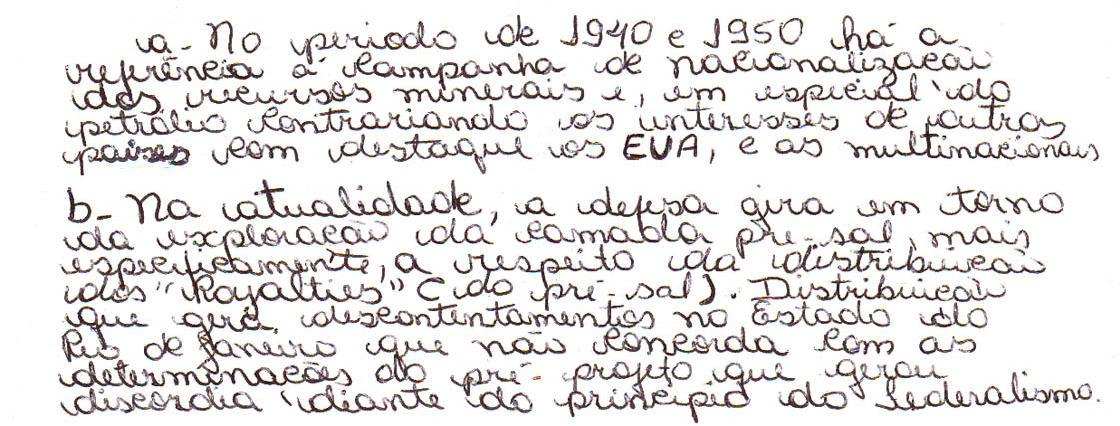 a- No periodo de 1940 e 1950 há a
referência à campanha de nacionalização
dos recursos minerais e, em especial do
petróleo contrariando os interesses de outros
países com destaque os EUA, e as multinacionais
b- Na atualidade, a defesa gira em torno
da exploração da camada pré-sal, mais
especificamente, a respeito da distribuição
dos "Royalties" (do pré-sal). Distribuição
que gera descontentamentos no Estado do
Rio de Janeiro que não concorda com as
determinações do pré-projeto que gerou
discórdia diante do princípio do federalismo.